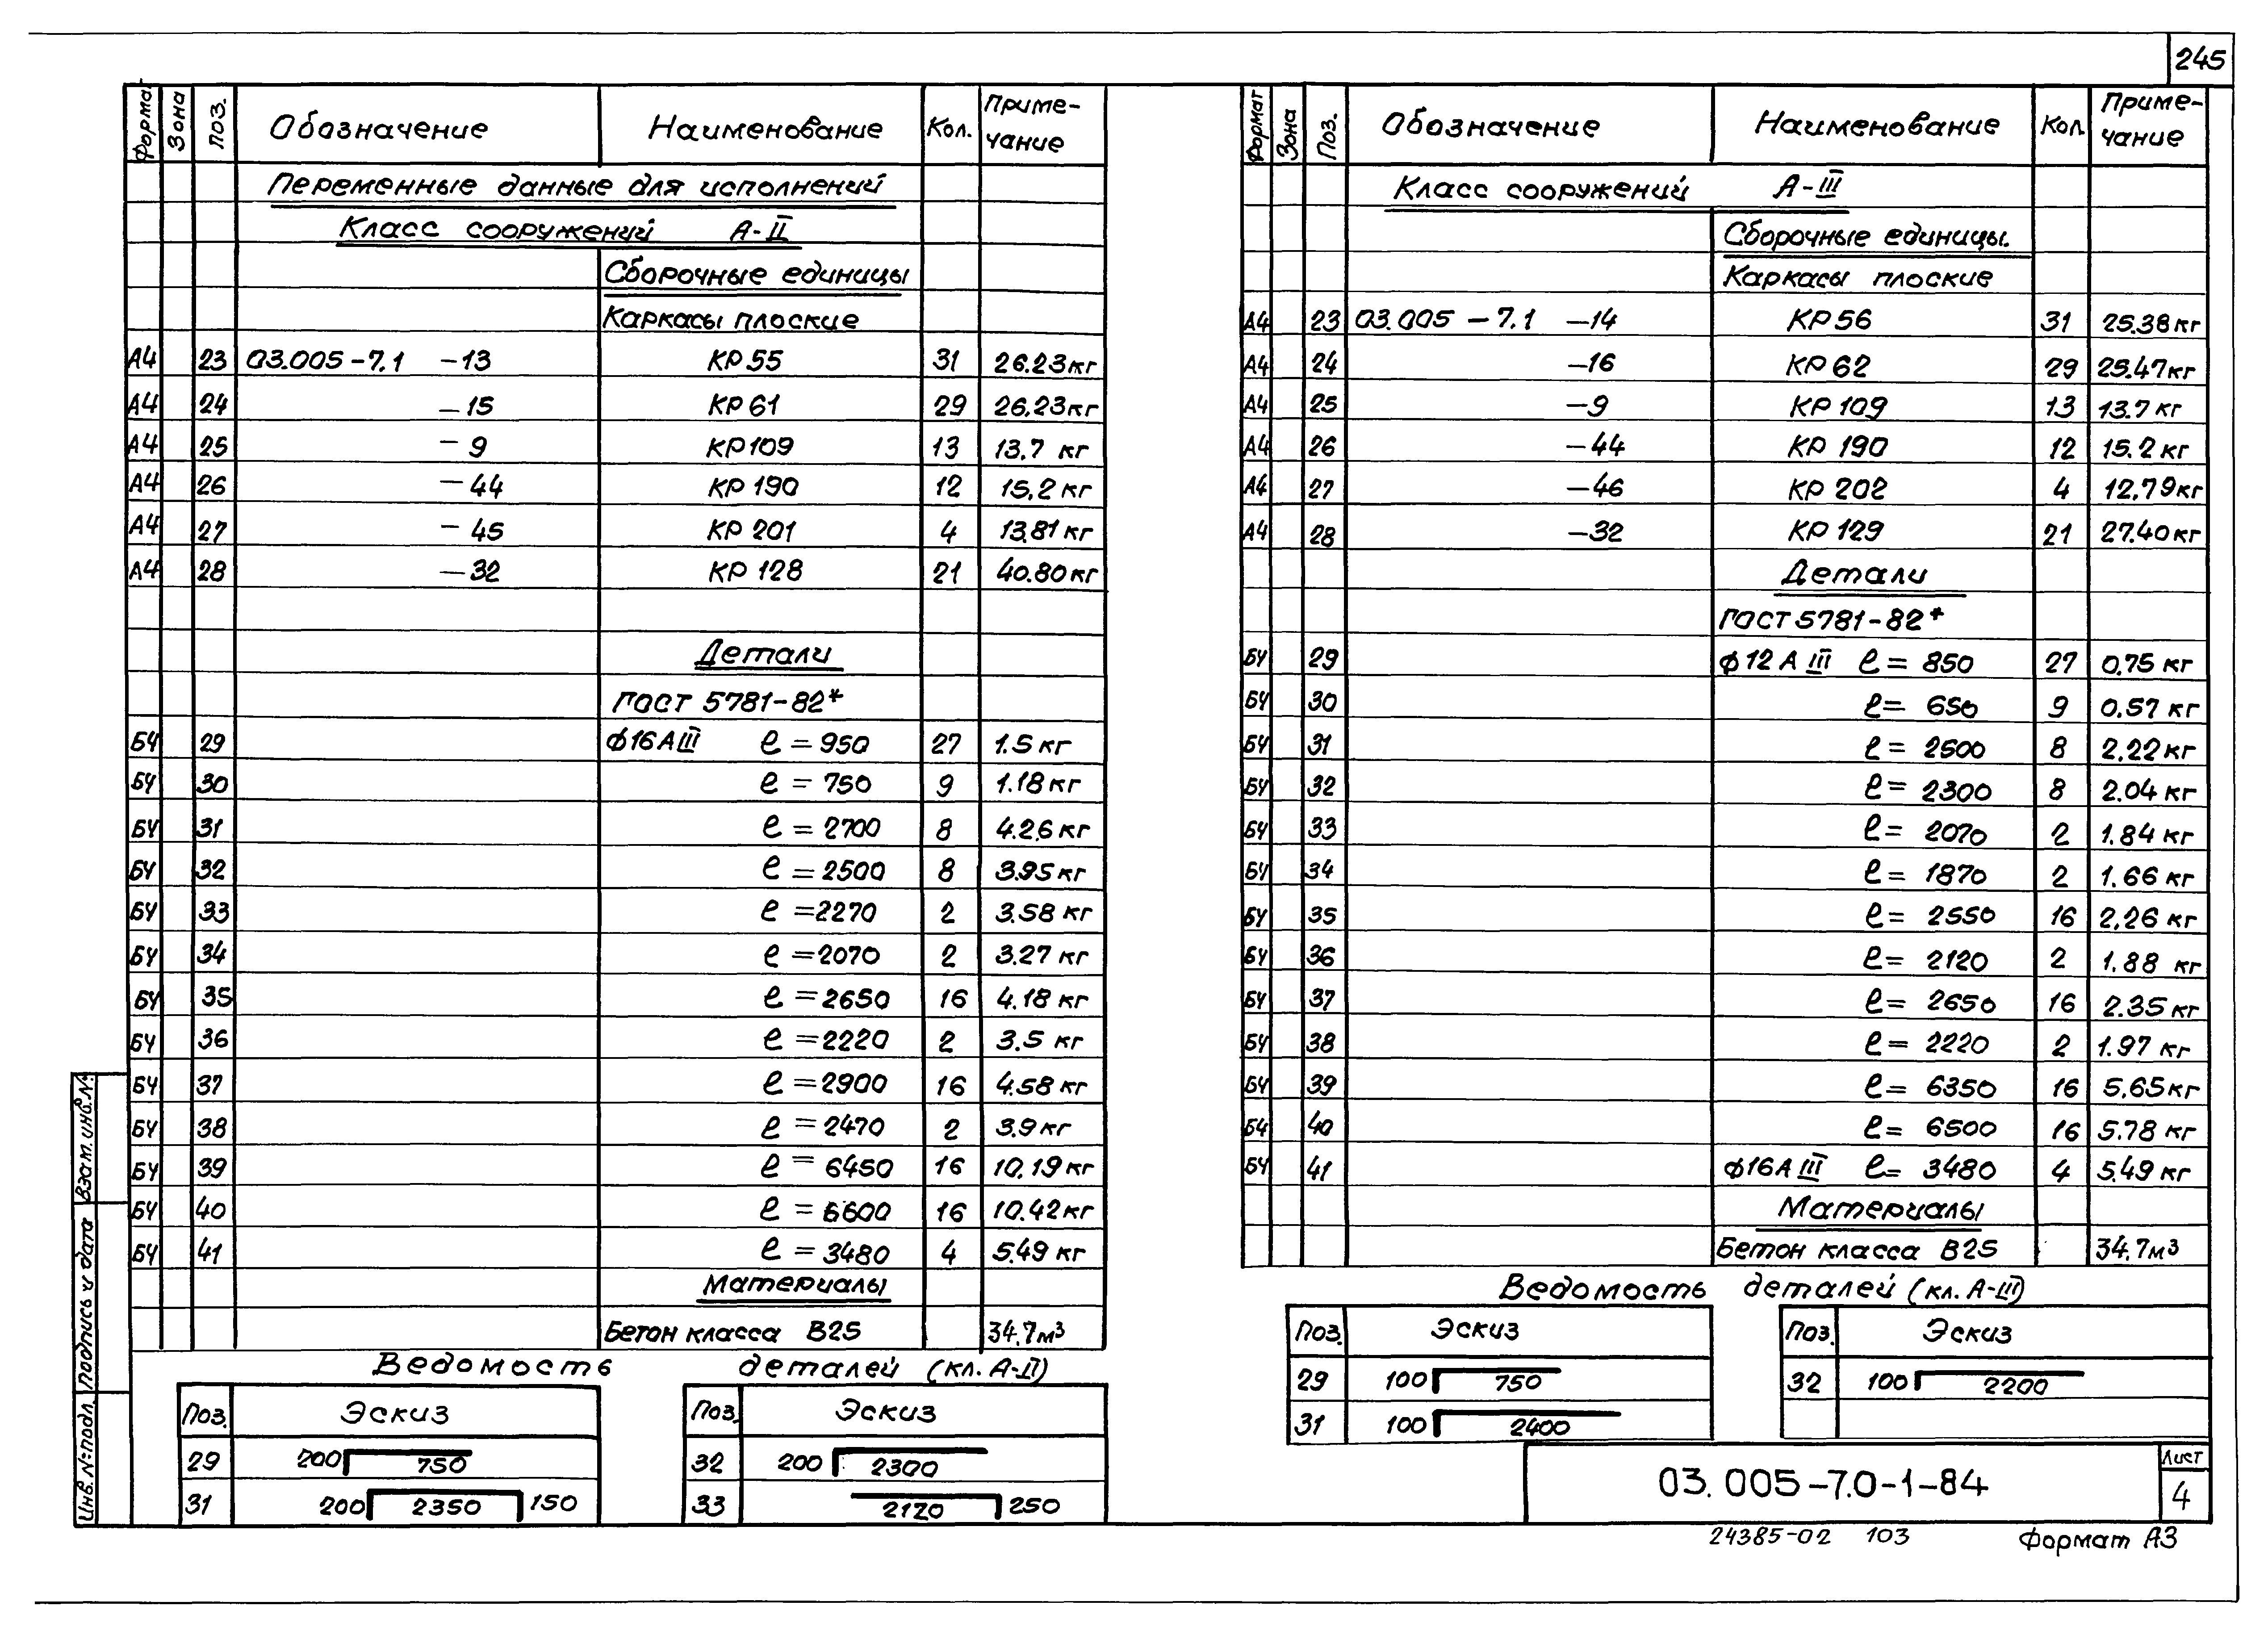 245
Формат Зона Поз. Обозначение Наименование Кол. Приме-чание
Переменные данные для исполнений
Класс сооружений А-II
Сборочные единицы
Каркасы плоские
А4 23 03.005-7.1 -13 КР55 31 26.23кг
А4 24 -15 КР61 29 26.23кг
А4 25 -9 КР109 13 13.7 кг
А4 26 -44 КР190 12 15.2 кг
А4 27 -45 КР201 4 13.81 кг
А4 28 -32 КР128 21 40.80кг
Детали
ГОСТ 5781-82*
БЧ 29 ф16АIII ℓ=950 27 1.5 кг
БЧ 30 ℓ=750 9 1.18 кг
БЧ 31 ℓ=2700 8 4.26 кг
БЧ 32 ℓ=2500 8 3.95 кг
БЧ 33 ℓ=2270 2 3.58 кг
БЧ 34 ℓ=2070 2 3.27 кг
БЧ 35 ℓ=2650 16 4.18 кг
БЧ 36 ℓ=2220 2 3.5 кг
БЧ 37 ℓ=2900 16 4.58 кг
БЧ 38 ℓ=2470 2 3.9 кг
БЧ 39 ℓ=6450 16 10.19 кг
БЧ 40 ℓ=6600 16 10.42 кг
БЧ 41 ℓ=3480 4 5.49 кг
Материалы
Бетон класса В25 34.7м³
Ведомость деталей (кл. А-II)
Поз. Эскиз Поз. Эскиз
29 200 750 32 200 2300
31 200 2350 150 33 2120 250
Формат Зона Поз. Обозначение Наименование Кол. Приме-чание
Класс сооружений А-III
Сборочные единицы.
Каркасы плоские
А4 23 03.005-7.1 -14 КР56 31 25.38кг
А4 24 -16 КР62 29 25.47кг
А4 25 -9 КР109 13 13.7 кг
А4 26 -44 КР190 12 15.2 кг
А4 27 -46 КР202 4 12.79кг
А4 28 -32 КР129 21 27.40кг
Детали
ГОСТ 5781-82*
БЧ 29 ф12АIII ℓ=850 27 0.75 кг
БЧ 30 ℓ=650 9 0.57 кг
БЧ 31 ℓ=2500 8 2.22 кг
БЧ 32 ℓ=2300 8 2.04 кг
БЧ 33 ℓ=2070 2 1.84 кг
БЧ 34 ℓ=1870 2 1.66 кг
БЧ 35 ℓ=2550 16 2.26 кг
БЧ 36 ℓ=2120 2 1.88 кг
БЧ 37 ℓ=2650 16 2.35 кг
БЧ 38 ℓ=2220 2 1.97 кг
БЧ 39 ℓ=6350 16 5.65кг
БЧ 40 ℓ=6500 16 5.78 кг
БЧ 41 ф16АIII ℓ=3480 4 5.49 кг
Материалы
Бетон класса В25 34.7м³
Ведомость деталей (кл. А-III)
Поз. Эскиз Поз. Эскиз
29 100 750 32 100 2200
31 100 2400
03.005-7.0-1-84 Лист 4
24385-02 103 Формат А3
Взам. инв. №
Подпись и дата
Инв. № подл.